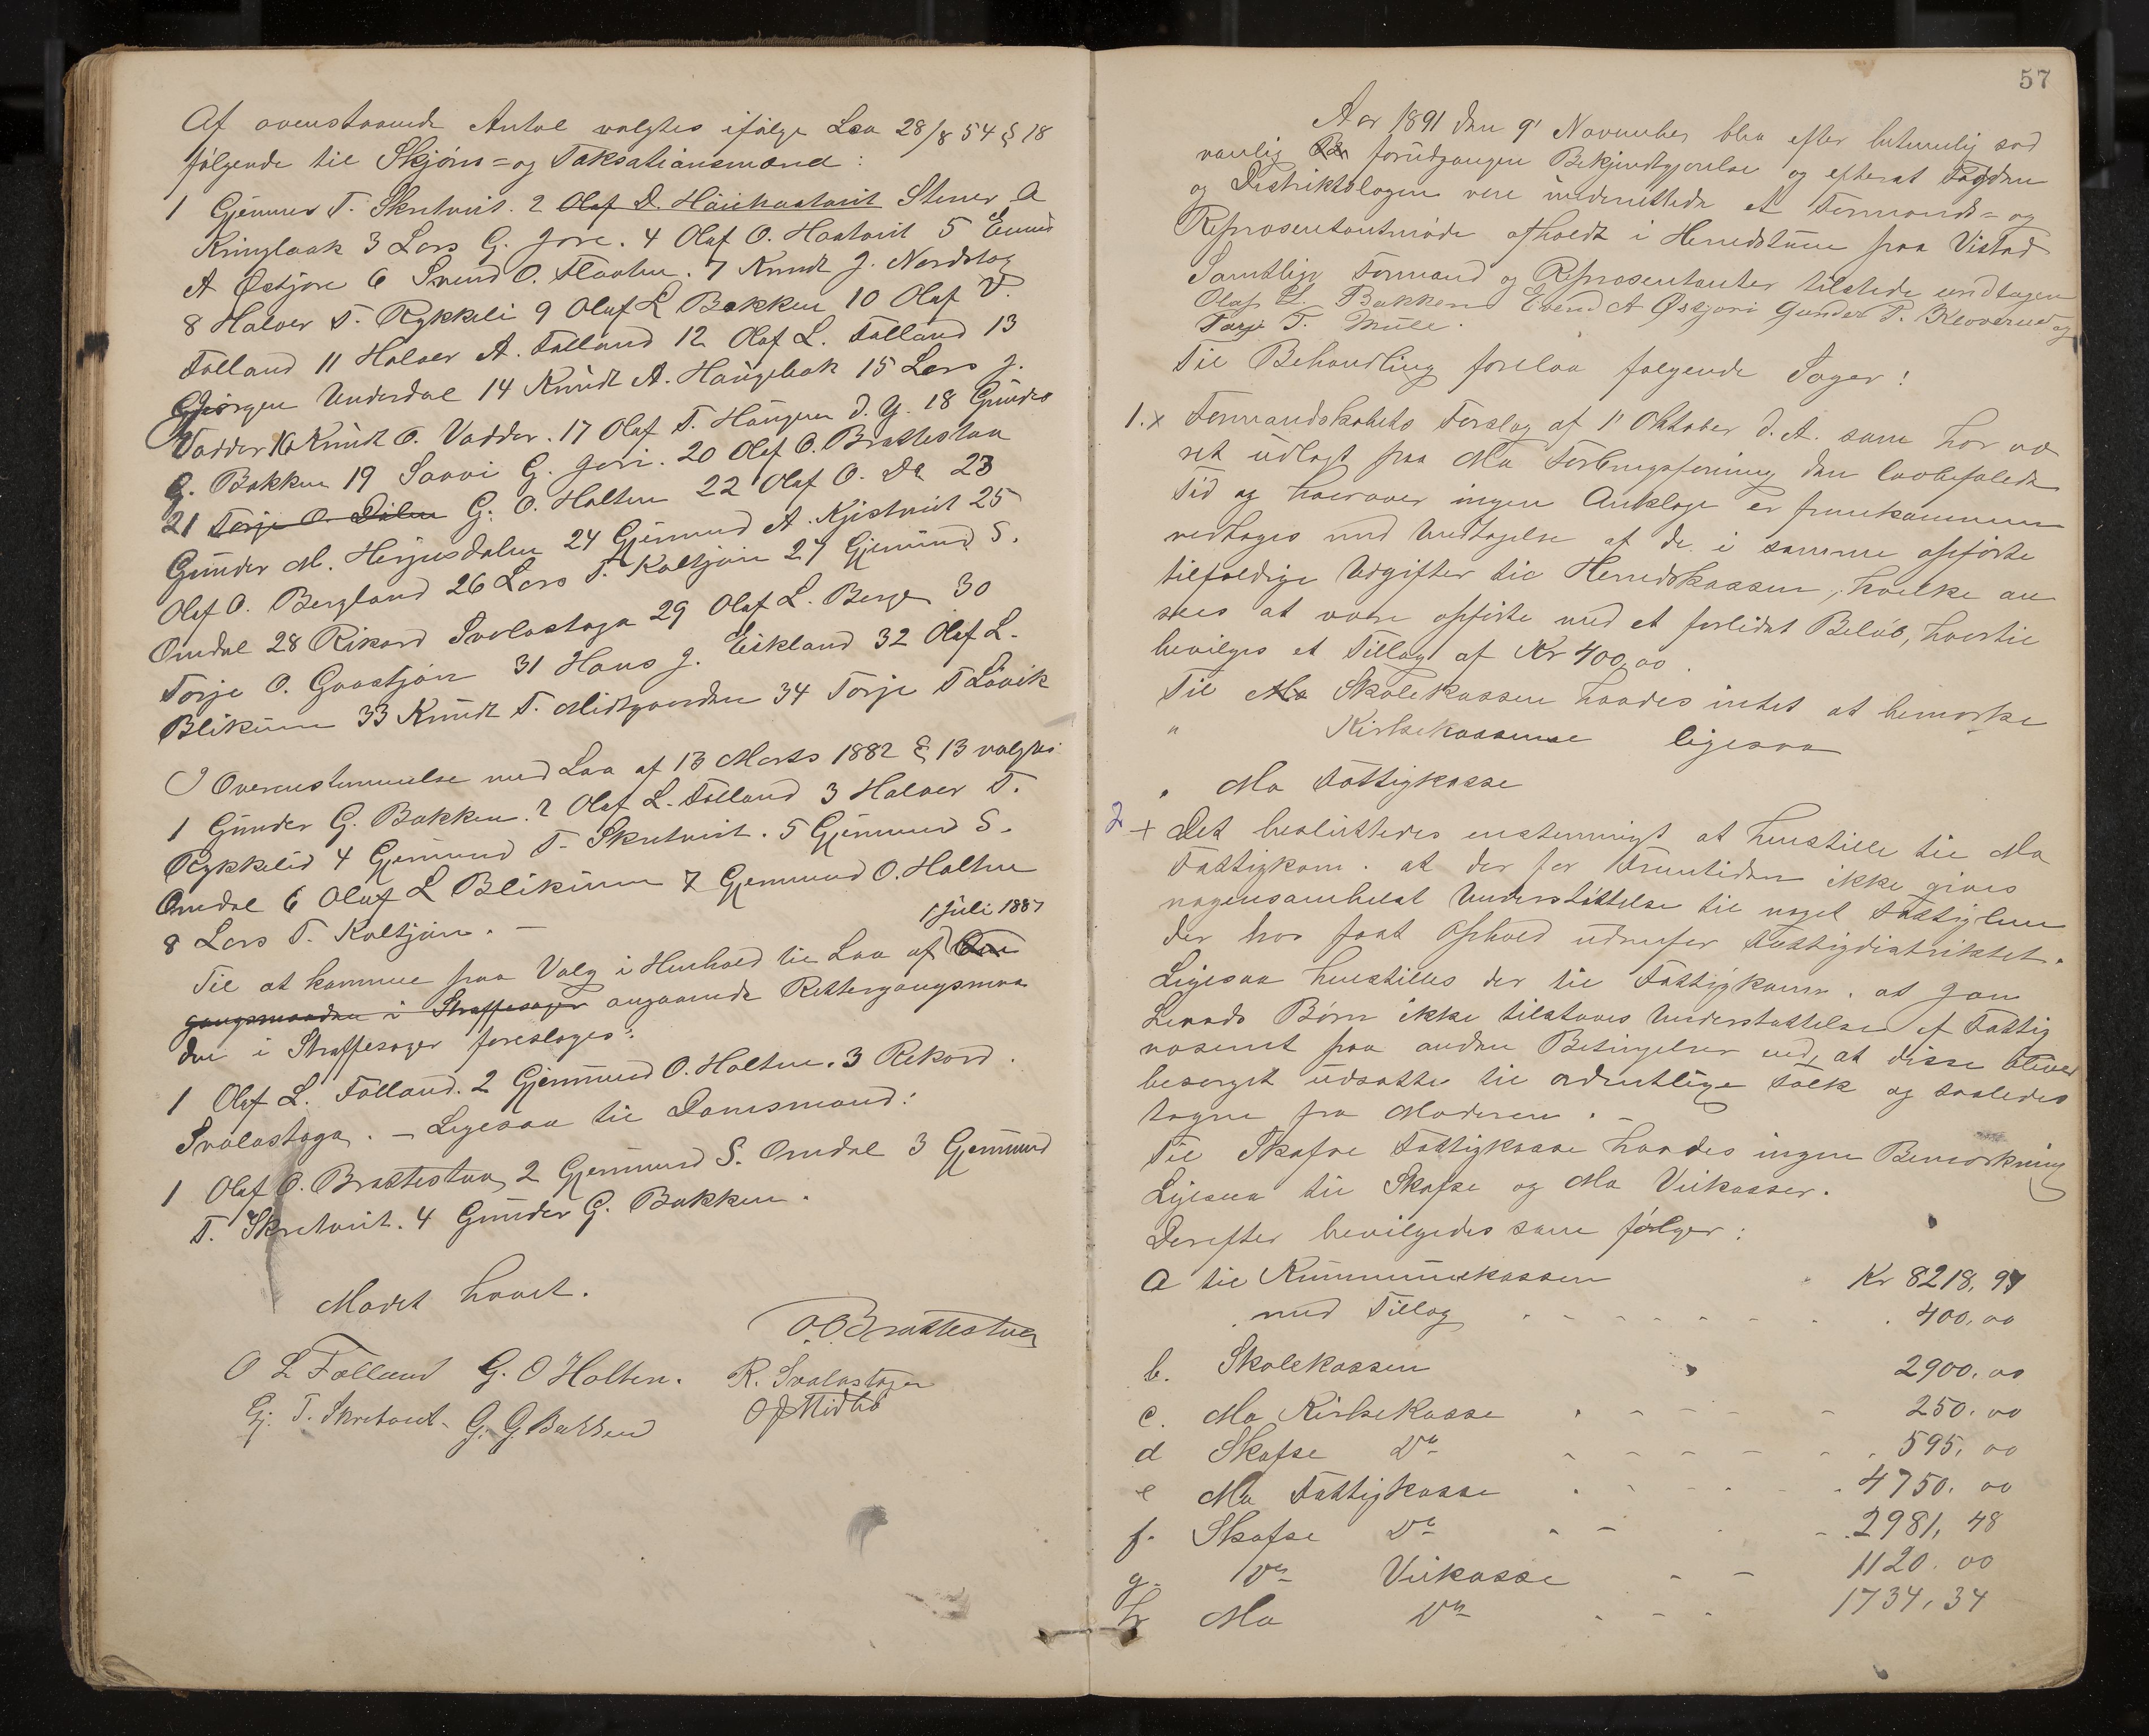 Af ovenstaaende Antal valgtes ifølge Lov 28/8 54 § 18
følgende til Skjøns= og Taksationsmænd:
1 Gjermund T. Skretveit. 2 Olaf D. Høichaatveit Stener A
Kringlaak 3 Lars G. Jore. 4 Olaf O. Haatveit 5 Eivind
A Østjore 6 Svend O. Flaaten. 7 Knudt J. Nordstog
8 Halvor T. Rykkeli 9 Oluf L Bakken 10 Olaf V.
Folland 11 Halvor A. Folland 12 Olaf L. Folland 13
Gjørgen Underdal 14 Knudt A. Haugebak 15 Lars J.
Vadder 16 Knudt O. Vadder. 17 Olaf T. Haugen d. y. 18 Gunder
G. Bakken 19 Saavi G. Jori. 20 Olaf O. Brattestaa
21 Torje O. Dalen G. O. Holten 22 Olaf O. Do 23
Gunder M. Herjusdalen 24 Gjermund A. Kjistveit 25
Olaf O. Bergland 26 Lars T. Koltjøn 27 Gjermund S.
Omdal 28 Rikard Svalastoga 29 Olaf L. Berge 30
Torje O. Gaastjøn 31 Hans J. Eikland 32 Olaf L.
Blikum 33 Knudt T. Midtgaarden 34 Torje T Lavik
I Overenstemmelse med Lov af 13 Marts 1882 § 13 valgtes:
1 Gunder G. Bakken. 2 Olaf L. Folland 3 Halvor T.
Rykkelid 4 Gjermund T. Skretveit. 5 Gjermund S.
Omdal 6 Olaf L Blikum 7 Gjermund O. Holten
8 Lars T. Koltjøn. –
1 Juli 1887
Til at komme paa Valg i Henhold til Lov af Om
gangsmaaden i Straffesager angaaende Rettergangsmaa
den i Straffesager foreslages:
1 Olaf L. Folland. 2 Gjermund O. Holten. 3 Rekard
Svalastoga. – Ligesaa til Domsmænd:
1 Olaf O. Brattestaa, 2 Gjermund S. Omdal 3 Gjermund
T. Skretveit. 4 Gunder G. Bakken.
Mødet hævet.
O. O. Brattestaa
O L Folland G. O Holten. R. Svalastoga
Gj. T. Skretveit. G. G. Bakken O J Midtbø
57
Aar 1891 den 9' November blev efter betimelig sød
vanlig forudgangen Bekjendtgjørelse og efterat Fogden
og Distriktslægen vare underrettede et Formands= og
Repræsentantmøde afholdt i Herredstuen paa Vistad
Samtlige Formænd og Repræsentanter tilstede undtagen
Olaf L. Bakken Eivend A Østjore Gunder P. Kleverud og
Torje T. Mule.
Til Behandling forelaa følgende Sager!
1. x Formandskabets Forslag af 1' Oktober d. A. som har væ
ret udlagt paa Mo Forbrugsforening den lovbefalede
Tid og hvorover ingen Anklage er fremkommen
vedtoges med Undtagelse af de i samme opførte
tilfældige Udgifter til Herredskassen, hvilke an
sees at være opførte med et forlidet Beløb, hvortil
bevilges et Tillæg af Kr 400,00.
Til Mo Skolekassen havdes intet at bemærke
" Kirkekasserne ligesaa
" Mo Fattigkasse
2 + Det besluttedes enstemmigt at henstille til Mo
Fattigkom. at der for Fremtiden ikke gives
nogensomhelst Understøttelse til noget Fattiglem
der har faat Ophold udenfor Fattigdistriktet.
Ligesaa henstilles der til Fattigkom. at Jon
Levads Børn ikke tilstaaes Understøttelse af Fattig
væsenet paa anden Betingelser end, at disse bliver
besørget udsatte til ordentlige Folk og saaledes
tagne fra Moderen. –
Til Skafse Fattigkasse havdes ingen Bemærkning
Ligesaa til Skafse og Mo Veikasser.
Derefter bevilgedes som følger:
a til Kummunekassen Kr 8218,97
med Tillæg 400,00
b. Skolekassen 2900,00
c. Mo Kirkekasse 250,00
d Skafse Do 595,00
e Mo Fattigkasse 4750,00
f. Skafse Do 2981,48
g. Do Veikasse 1120,00
h Mo Do 1734,34